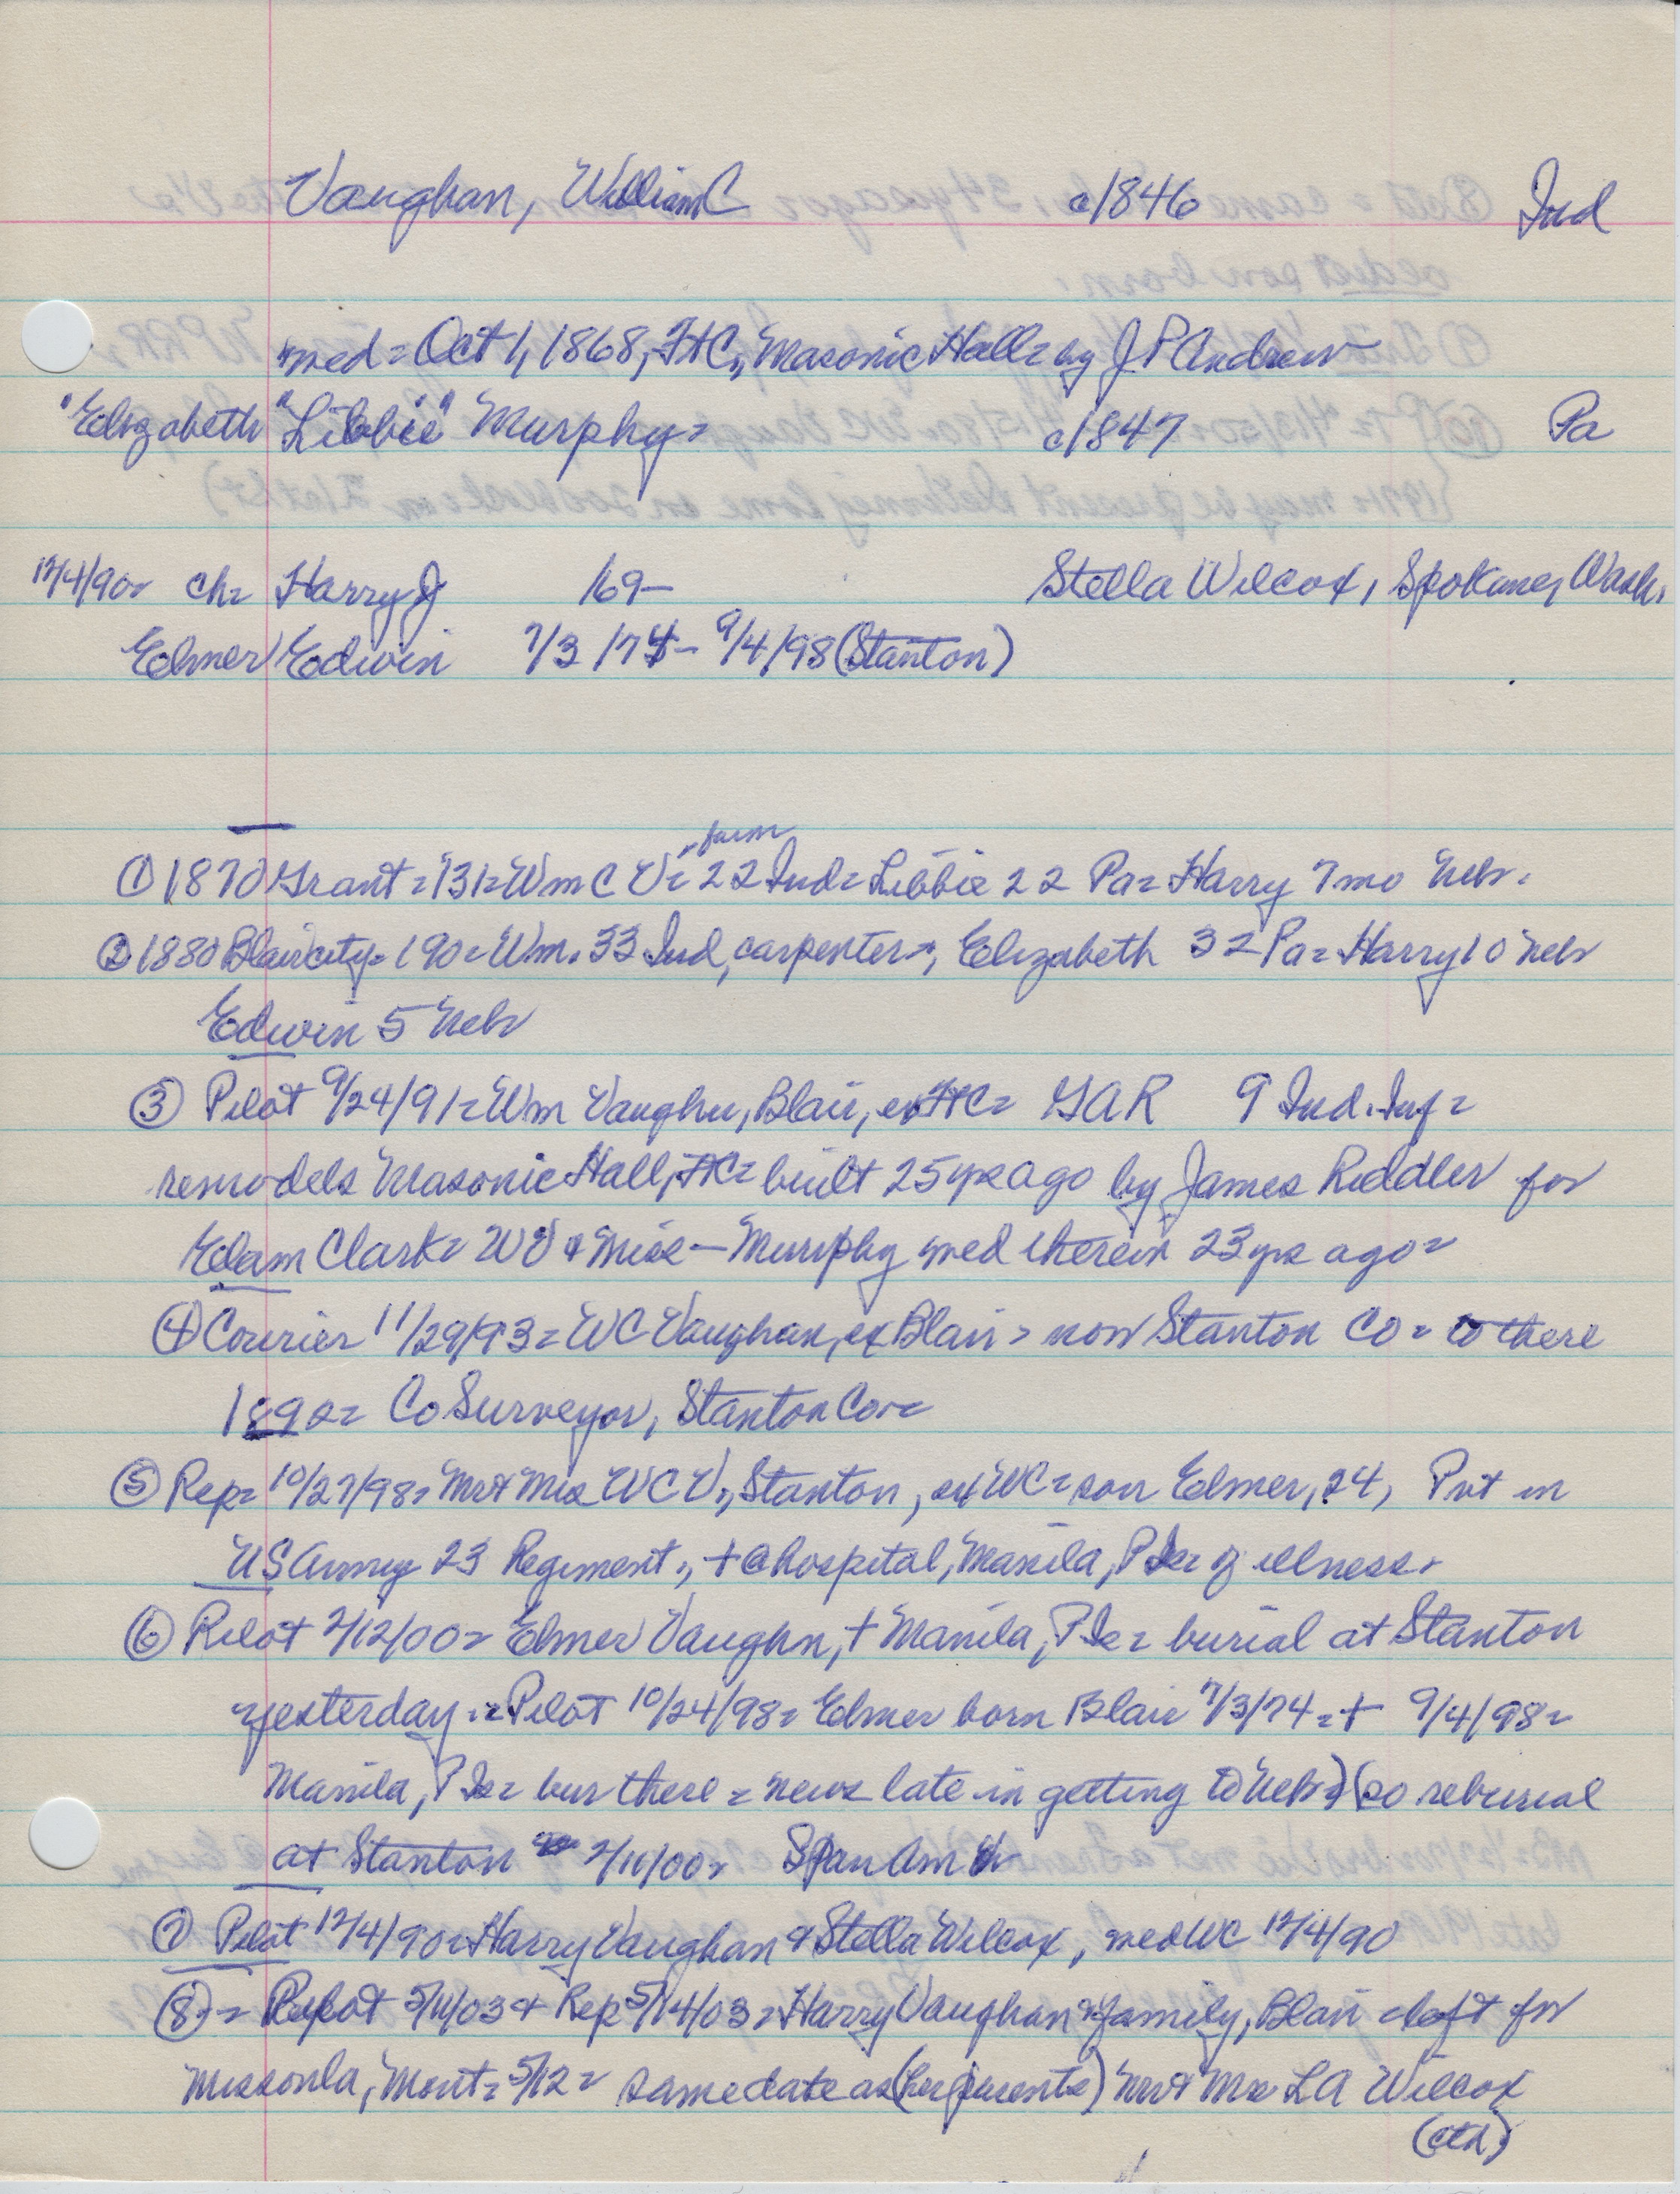 Vaughan, William C c1846 Ind
med = Oct 1, 1868, FtC., Masonic Hall = by J P Andrew
"Elizabeth "Libbie" Murphy = c1847 Pa
12/4/90 = ch = Harry J /69 - Stella Wilcox, Spokane, Wash.
Elmer Edwin 7/3/74 - 9/4/98 (Stanton)
farm
① 1870 Grant = 131 = Wm C V = 22 Ind = Libbie 22 Pa = Harry 7 mo Neb.
② 1880 Blair city = 190 = Wm. 33 Ind, carpenter, Elizabeth 32 Pa = Harry 10 Neb
Edwin 5 Neb
③ Pilot 9/24/91 = Wm Vaughn, Blair, ex FtC = GAR 9 Ind. Inf =
remodels Masonic Hall, FtC = built 25 yrs ago by James Riddler for
Elam Clark = WV & Miss — Murphy med therein 23 yrs ago =
④ Courier 11/29/93 = WC Vaughan, ex Blair > now Stanton Co = to there
1890 = Co Surveyor, Stanton Co =
⑤ Rep = 10/27/98 = Mr & Mrs WCV., Stanton, ex WC = son Elmer, 24, Pvt in
US Army 23 Regiment., + @ hospital, Manila, P Is = of illness.
⑥ Pilot 2/12/00 = Elmer Vaughn, + Manila, P Is = burial at Stanton
yesterday. = Pilot 10/24/98 = Elmer born Blair 7/3/74 = + 9/4/98 =
Manila, P Is = bur there = news late in getting to Neb =) (so reburial
at Stanton 2/11/00 = Span Am W
⑦ Pilot 12/4/90 = Harry Vaughan & Stella Wilcox, med WC 12/4/90
⑧ = Pilot 5/11/03 & Rep 5/14/03 = Harry Vaughan & family, Blair left for
Missoula, Mont = 5/12 = same date as (her parents) Mr & Mrs LA Wilcox
(ctd)